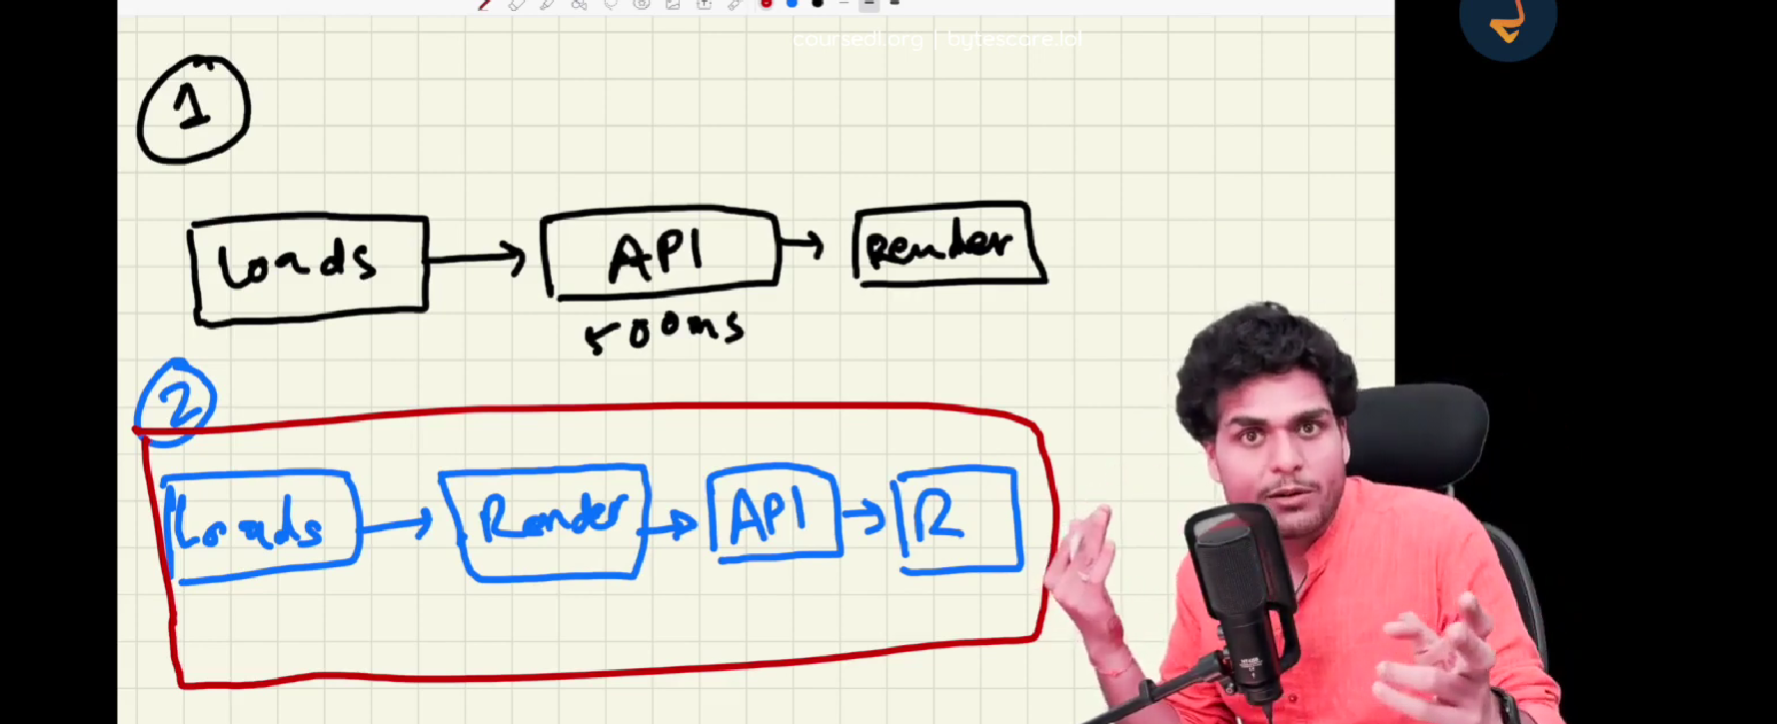 coursedl.org | bytescore.lol
1
Loads API Render
500ms
2
Loads Render API R